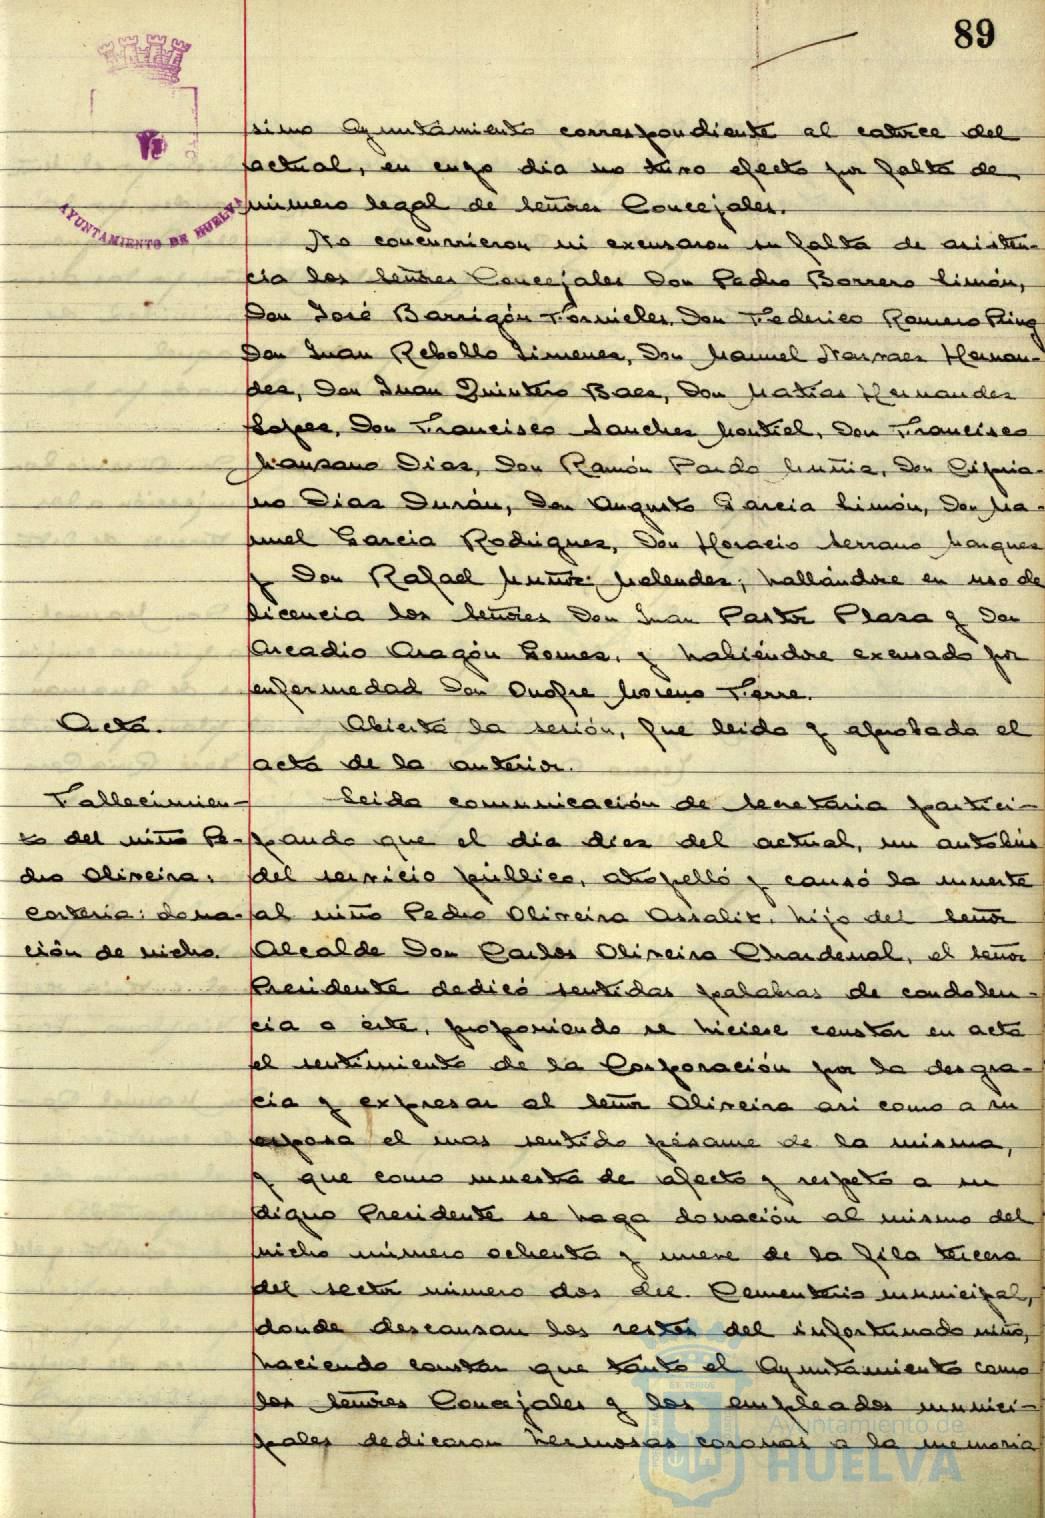 89
AYUNTAMIENTO DE HUELVA
simo Ayuntamiento correspondiente al catorce del
actual, en cuyo dia no tuvo efecto por falta de
número legal de señores Concejales.
No concurrieron ni excusaron su falta de asisten-
cia los señores Concejales Don Pedro Borrero Limón,
Don José Barrigón Fornieles, Don Federico Romero Ring
Don Juan Rebollo Jimenez, Don Manuel Narvaez Hernan-
dez, Don Juan Quintero Baez, Don Matías Hernandez
Lopez, Don Francisco Sanchez Montiel, Don Francisco
Manzano Diaz, Don Ramón Pardo Muñiz, Don Cipria-
no Diaz Durán, Don Augusto Garcia Limón, Don Ma-
nuel Garcia Rodriguez, Don Horacio Serrano Marquez
y Don Rafael Muñoz Melendez; hallándose en uso de
licencia los señores Don Juan Pastor Plaza y Don
Arcadio Aragón Gomez, y habiéndose excusado por
enfermedad Don Onofre Moreno Ferre.
Acta.
Abierta la sesión, fue leida y aprobada el
acta de la anterior.
Fallecimien-
to del niño Pe-
dro Oliveira:
corteria: dona-
ción de nicho.
Leida comunicación de Secretaria partici-
pando que el dia diez del actual, un autobús
del servicio público, atropelló y causó la muerte
al niño Pedro Oliveira Assalit, hijo del señor
Alcalde Don Carlos Oliveira Chardenal, el señor
Presidente dedicó sentidas palabras de condolen-
cia a éste, proponiendo se hiciese constar en acta
el sentimiento de la Corporación por la desgra-
cia y expresar al señor Oliveira asi como a su
esposa el mas sentido pésame de la misma,
y que como muestra de afecto y respeto a su
digno Presidente se haga donación al mismo del
nicho número ochenta y nueve de la fila tercera
del sector número dos del Cementerio municipal,
donde descansan los restos del infortunado niño,
haciendo constar que tanto el Ayuntamiento como
los señores Concejales y los empleados munici-
pales dedicaron hermosas coronas a la memoria
Ayuntamiento de
HUELVA